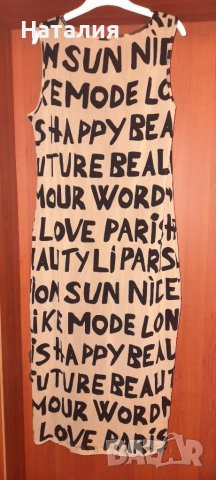 Наталия
WSUN NICE
KEMODE LO
SHAPPY BEA
TURE BEAU
MOUR WORD
LOVE PARISH
AUTY LI PARIS
ION SUN NICE
LIKEMODE LON
SHAPPY BEA
FUTURE BEAUT
MOUR WOR
LOVE PARIS
BAZAR